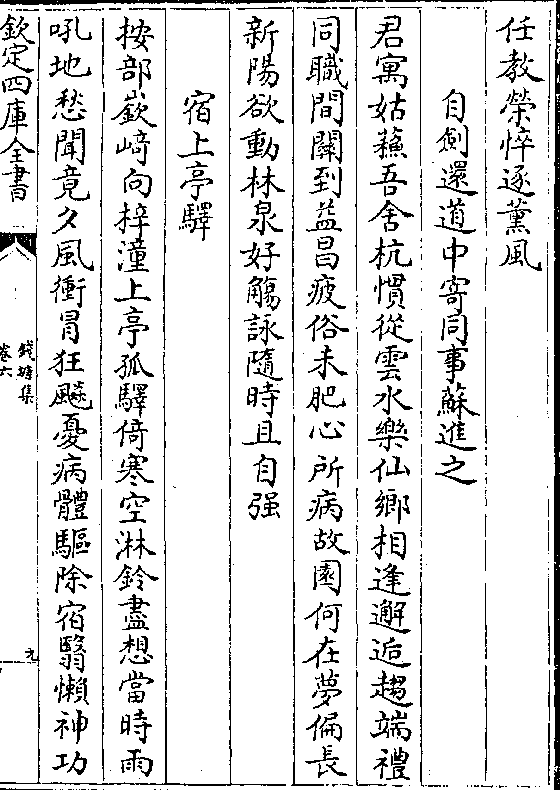 任教榮悴逐薫風
自劍還道中寄同事蘇進之
君寓姑蘓吾舍杭慣從雲水樂仙鄉相逢邂逅趨端禮
同職間關到益昌疲俗未肥心所病故園何在夢偏長
新陽欲動林泉好觴詠隨時且自强
宿上亭驛
按部嶔﨑向梓潼上亭孤驛倚寒空淋鈴盡想當時雨
吼地愁聞竟夕風衝冒狂飈憂病體驅除宿翳懶神功
欽定四庫全書
錢塘集
卷六
九